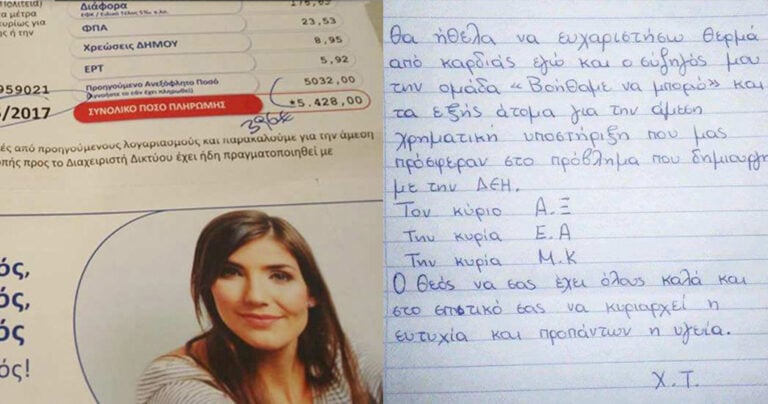 πολιτεία)
α μέτρα
υρίως για
ς ή την
Διάφορα
175,63
ΦΠΑ
23,53
Χρεώσεις ΔΗΜΟΥ
8,95
ΕΡΤ
5,92
959021
Προηγούμενο Ανεξόφλητο Ποσό
5032,00
(αγνοήστε το εάν έχει πληρωθεί)
/2017
ΣΥΝΟΛΙΚΟ ΠΟΣΟ ΠΛΗΡΩΜΗΣ
*5.428,00
ές από προηγούμενους λογαριασμούς και παρακαλούμε για την άμεση
πής προς το Διαχειριστή Δικτύου έχει ήδη πραγματοποιηθεί με
ός,
ός,
ός
ός!
Θα ήθελα να ευχαριστήσω θερμά
από καρδιάς εγώ και ο σύζηγός μου
την ομάδα «Βοήθαμε να μπορώ» και
τα εξής άτομα για την άμεση
χρηματική υποστήριξη που μας
πρόσφεραν στο πρόβλημα που δημιουργη
με την ΔΕΗ.
Τον κύριο Α.Ξ
Την κυρία Ε.Α
Την κυρία Μ.Κ
Ο Θεός να σας έχει όλους καλά και
στο σπιτικό σας να κυριαρχεί η
ευτυχία και προπάντων η υγεία.
Χ.Τ.